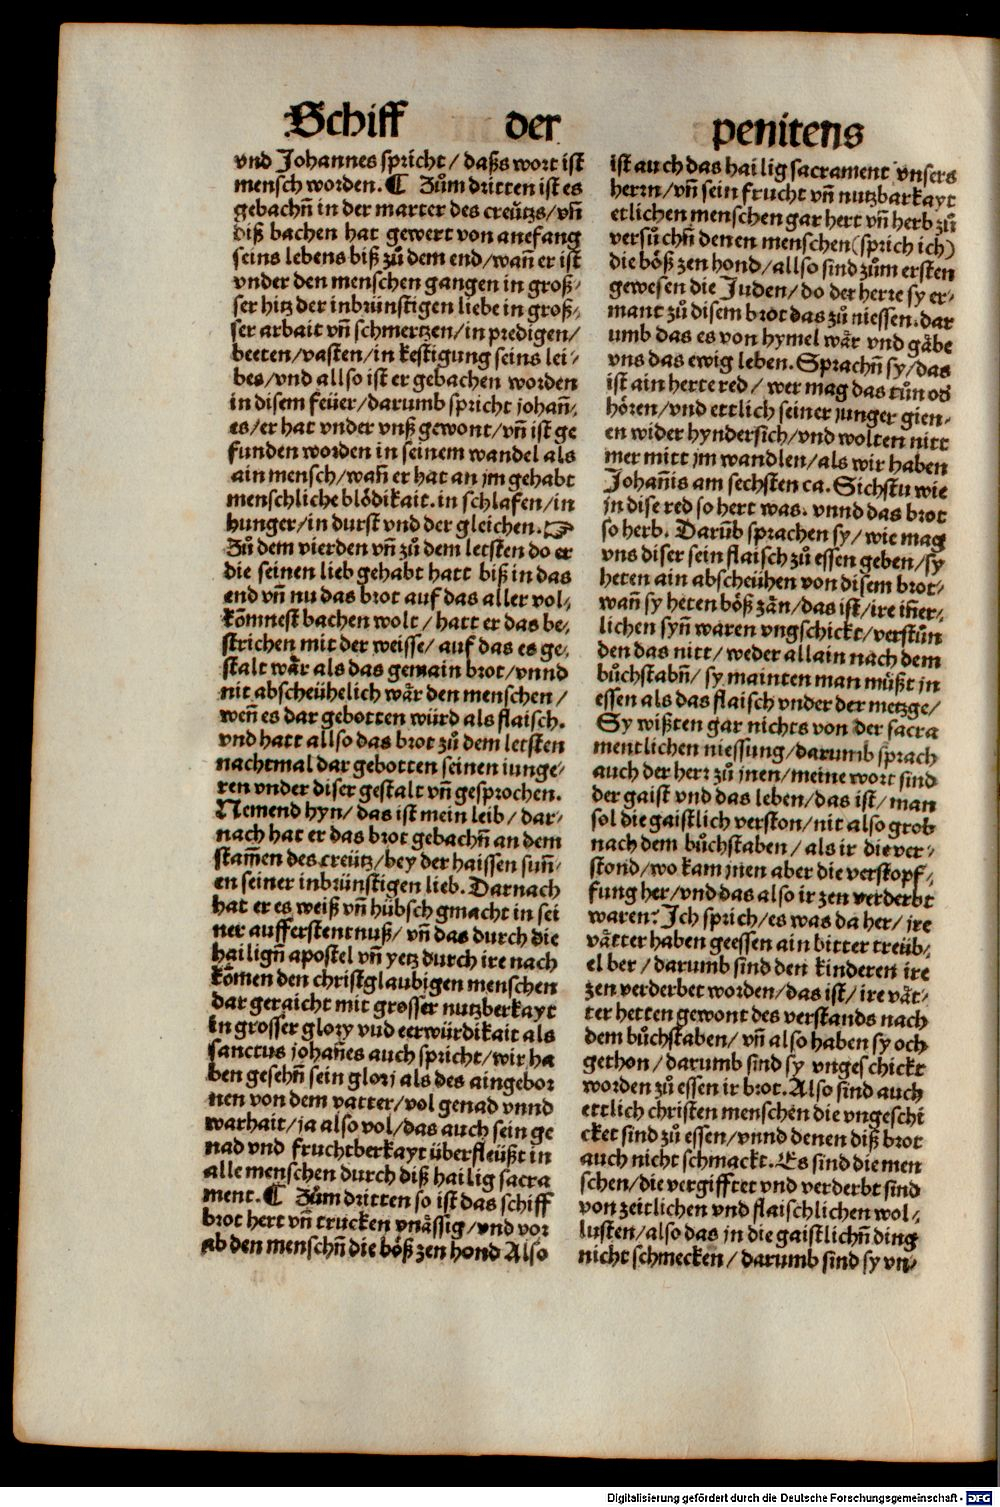 Schiff der penitens
vnd Johannes spricht / daßs wort ist
mensch worden. ¶ Zům dritten ist es
gebachñ in der marter des creütz/ vñ
diß bachen hat gewert von anefang
seins lebens biß zů dem end/wañ er ist
vnder den menschen gangen in groß-
ser hitz der inbrünstigen liebe in groß-
ser arbait vñ schmertzen/in predigen/
beeten/vasten/in kestigung seins lei-
bes/vnd allso ist er gebachen worden
in disem feüer/darumb spricht johañ-
es/er hat vnder vnß gewont/vñ ist ge
funden worden in seinem wandel als
ain mensch/wañ er hat an jm gehabt
menschliche blödikait.in schlafen/in
hunger/in durst vnd der gleichen. ☞
Zů dem vierden vñ zů dem letsten do er
die seinen lieb gehabt hatt biß in das
end vñ nu das brot auf das aller vol-
kõmnest bachen wolt / hatt er das be-
strichen mit der weisse/ auf das es ge-
stalt wår als das gemain brot/vnnd
nit abscheühelich wår den menschen /
weñ es dar gebotten würd als flaisch.
vnd hatt allso das brot zů dem letsten
nachtmal dar gebotten seinen iunge-
ren vnder diser gestalt vñ gesprochen.
Nemend hyn/ das ist mein leib / dar-
nach hat er das brot gebachñ an dem
stam̃en des creütz/bey der haissen suñ-
en seiner inbrünstigen lieb. Darnach
hat er es weiß vñ hübsch gmacht in sei
ner aufferstentnuß/ vñ das durch die
hailigñ apostel vñ yetz durch ire nach
kõmen den christglaubigen menschen
dar geraicht mit grosser nutzberkayt
in grosser glory vnd eerwürdikait als
sanctus johañes auch spricht/wir ha
ben gesehñ sein glorj als des aingebor
nen von dem vatter/vol genad vnnd
warhait/ja also vol/das auch sein ge
nad vnd fruchtberkayt überfleüßt in
alle menschen durch diß hailig sacra
ment. ¶ Zům dritten so ist das schiff
brot hert vñ trucken vnässig/vnd vor
ab den menschñ die böß zen hond Also
ist auch das hailig sacrament vnsers
herrn/vñ sein frucht vñ nutzbarkayt
etlichen menschen gar hert vñ herb zů
versůchñ denen menschen(sprich ich)
die böß zen hond/allso sind zům ersten
gewesen die Juden/do der herre sy er-
mant zů disem brot das zů niessen.dar
umb das es von hymel wår vnd gåbe
vns das ewig leben. Sprachñ sy/das
ist ain herte red / wer mag das tůn od
hören/vnd ettlich seiner junger gien-
en wider hyndersich/vnd wolten nitt
mer mitt jm wandlen/als wir haben
Johañis am sechsten ca. Sichstu wie
jn dise red so hert was. vnnd das brot
so herb. Darũb sprachen sy/ wie mag
vns diser sein flaisch zů essen geben/sy
heten ain abscheühen von disem brot-
wañ sy heten böß zån/das ist/ire iñer-
lichen syñ waren vngschickt/verstůn
den das nitt/ weder allain nach dem
bůchstabñ/ sy mainten man můßt jn
essen als das flaisch vnder der metzge/
Sy wißten gar nichts von der sacra
mentlichen niessung/darumb sprach
auch der herr zů jnen/meine wort sind
der gaist vnd das leben/das ist/ man
sol die gaistlich verston/nit also grob
nach dem bůchstaben / als ir die ver-
stond/wo kam jnen aber die verstopf-
fung her/vnd das also ir zen verderbt
waren? Ich sprich/es was da her/ ire
våtter haben geessen ain bitter treüb-
el ber / darumb sind den kinderen ire
zen verderbet worden/das ist/ ire våt-
ter hetten gewont des verstands nach
dem bůchstaben/ vñ also haben sy och
gethon / darumb sind sy vngeschickt
worden zů essen ir brot. Also sind auch
ettlich christen menschen die vngeschi
cket sind zů essen/vnnd denen diß brot
auch nicht schmackt. Es sind die men
schen/die vergifftet vnd verderbt sind
von zeitlichen vnd flaischlichen wol-
lusten/also das jn die gaistlichñ ding
nicht schmecken / darumb sind sy vn-
Digitalisierung gefördert durch die Deutsche Forschungsgemeinschaft - DFG